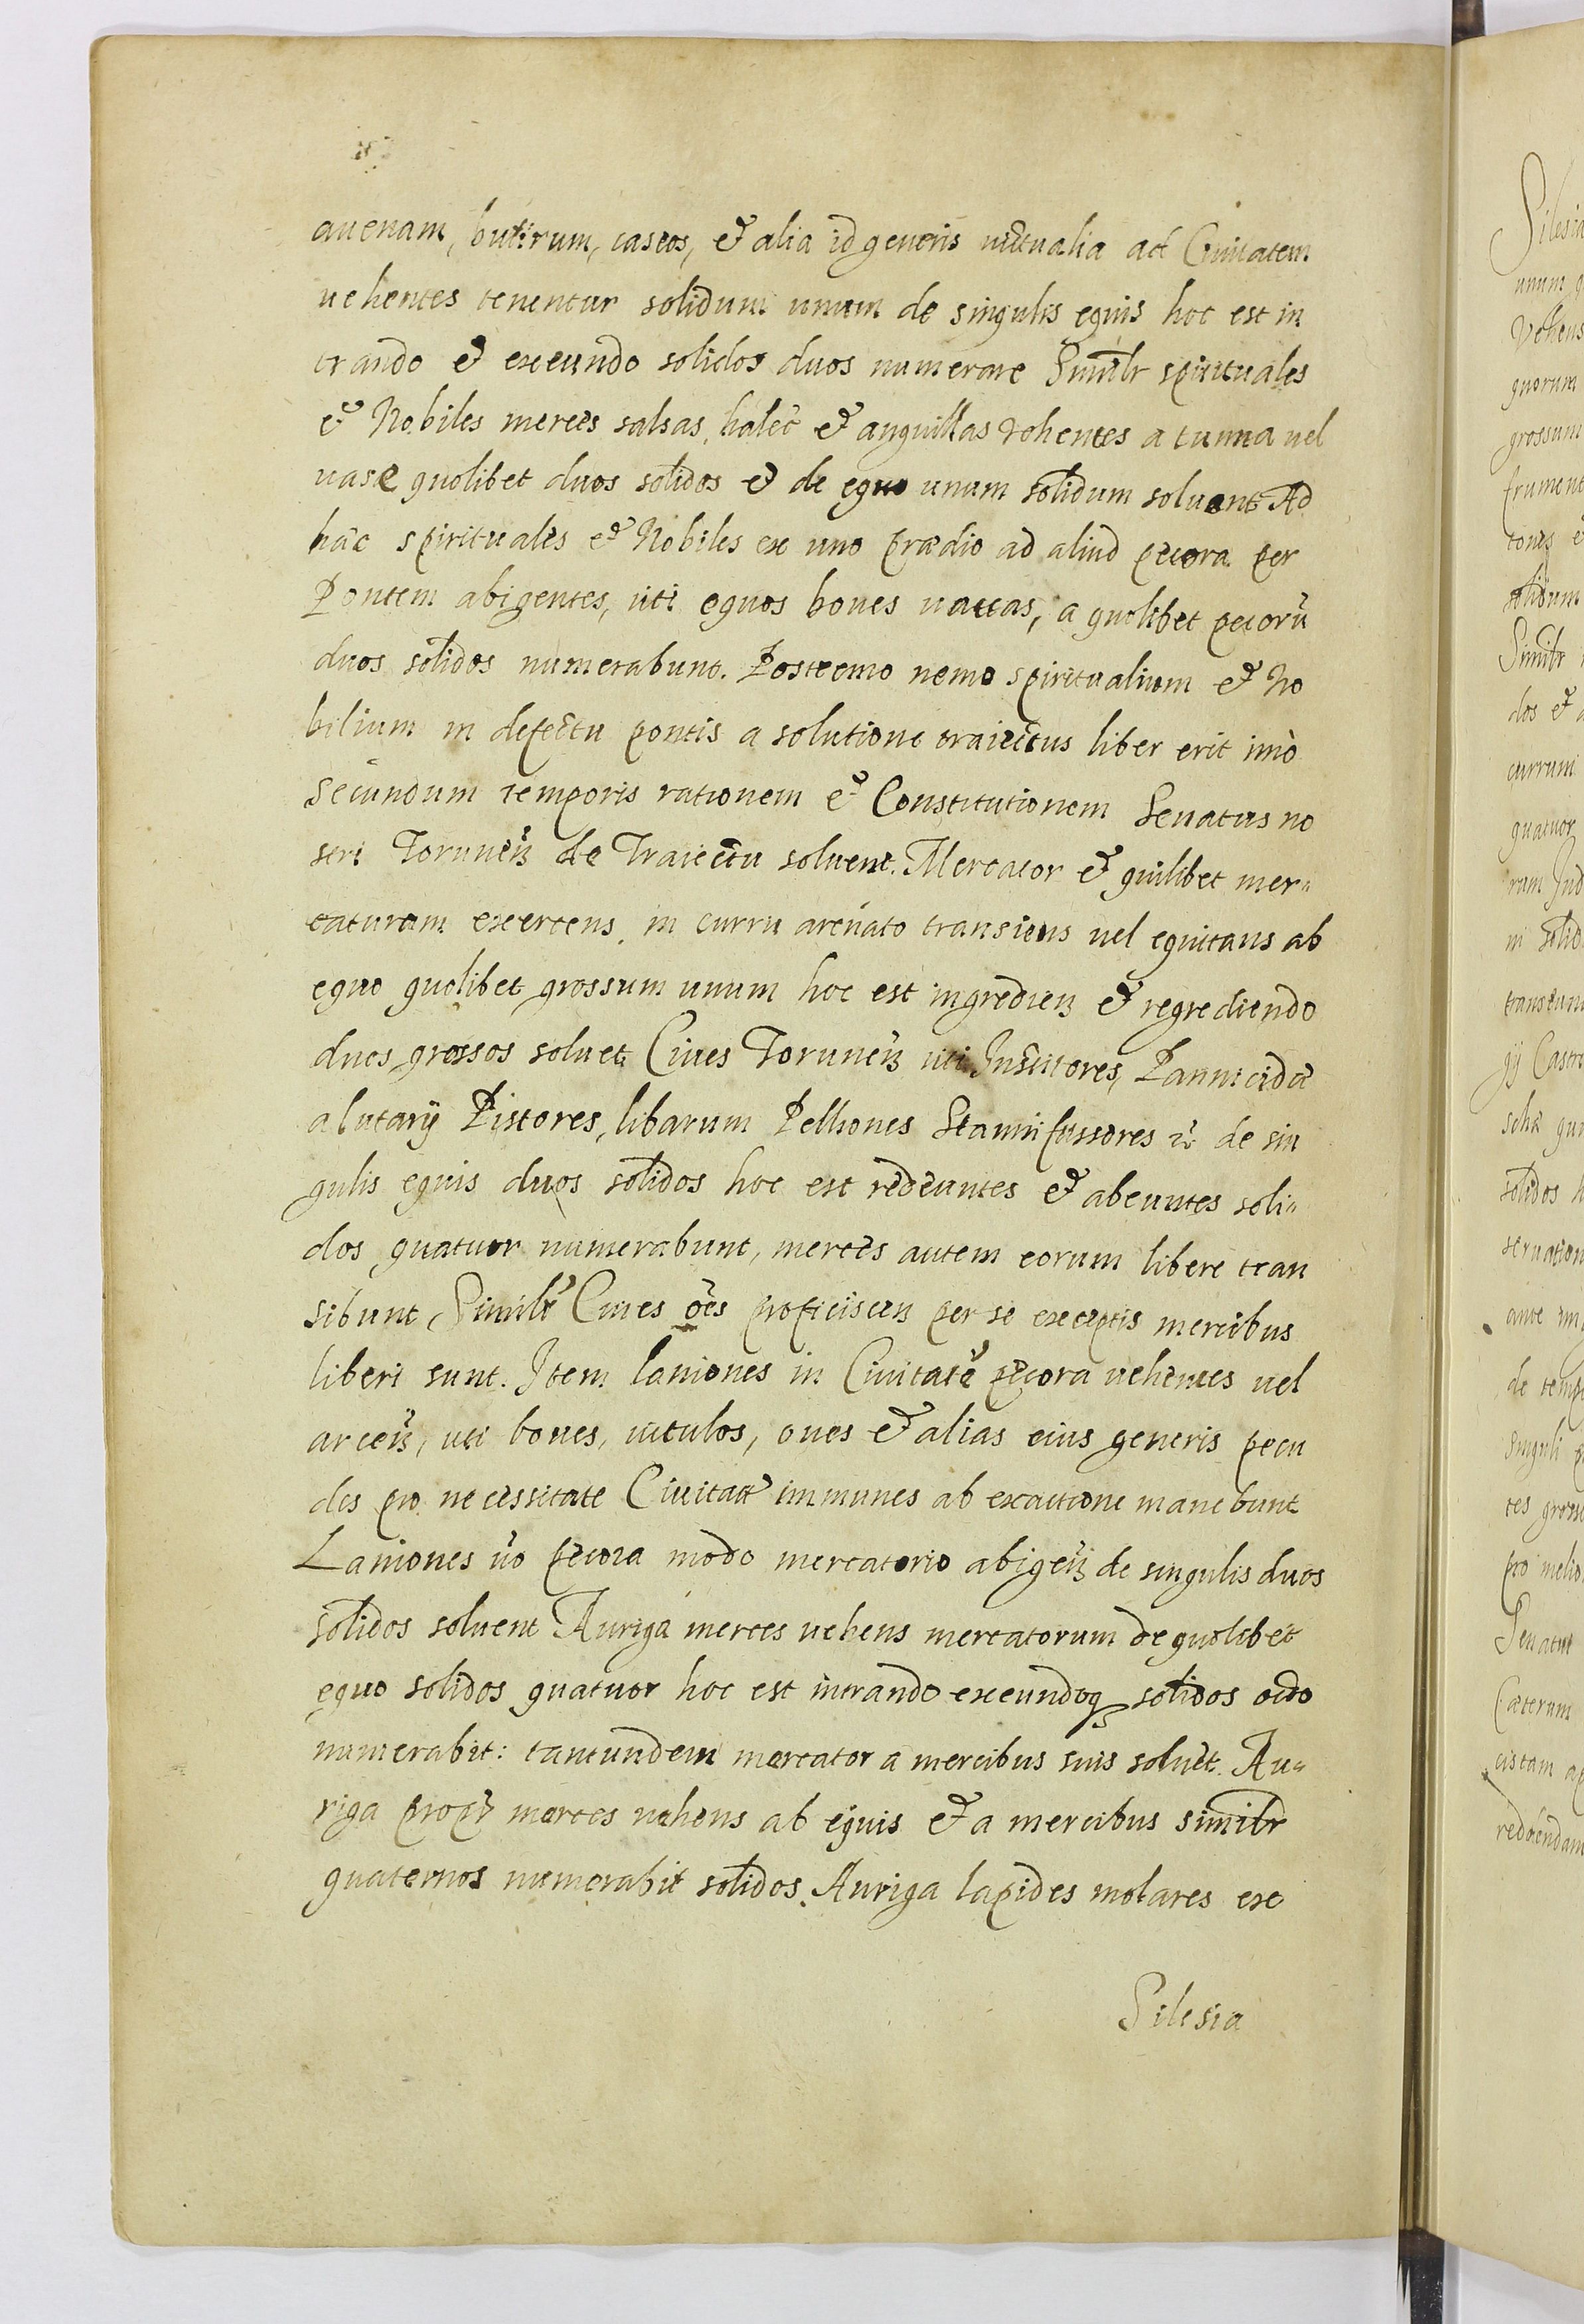 auenam, butirum, caseos, et alia id generis uictualia ad Ciuitatem
uehentes tenentur solidum unum de singulis equis hoc est in
trando et exeundo solidos duos numerare Similr spirituales
et Nobiles merces salsas, halec et anguillas vehentes a tunna uel
uase quolibet duos solidos et de equo unum solidum soluent Ad
hæc spirituales et Nobiles ex uno prædio ad aliud pecora per
Pontem abigentes, uti equos boues uaccas, a quolibet pecorū
duos solidos numerabunt. Postremo nemo spiritualium et No
bilium in defectu pontis a solutione traiectus liber erit imò
secundum temporis rationem et Constitutionem Senatus no
stri Toruneñ de Traiectu soluent. Mercator et quilibet mer„
caturam exercens, in curru arcuato transiens uel equitans ab
equo quolibet grossum unum hoc est ingredieñ et regrediendo
duos grossos soluet Ciues Toruneñ uti Institores, Pannicidæ
alutarij Pistores, libarum Pelliones Stannifussores etc de sin
gulis equis duos solidos hoc est redeuntes et abeuntes soli„
dos quatuor numerabunt, merces autem eorum libere tran
sibunt, Similr Ciues oēs proficisceñ per se exceptis mercibus
liberi sunt. Item laniones in Ciuitatē pecora uehentes uel
arceñ, uti boues, uitulos, oues et alias eius generis pecu
des pro necessitate Ciuitat immunes ab exactione manebunt
Laniones ūo pecora modo mercatorio abigeñ de singulis duos
solidos soluent Auriga merces uehens mercatorum de quolibet
equo solidos quatuor hoc est intrando exeundoq solidos octo
numerabit: tantundem mercator a mercibus suis soluet. Au„
riga merces uehens ab equis et a mercibus similr
quaternos numerabit solidos. Auriga lapides molares ex
Silesia